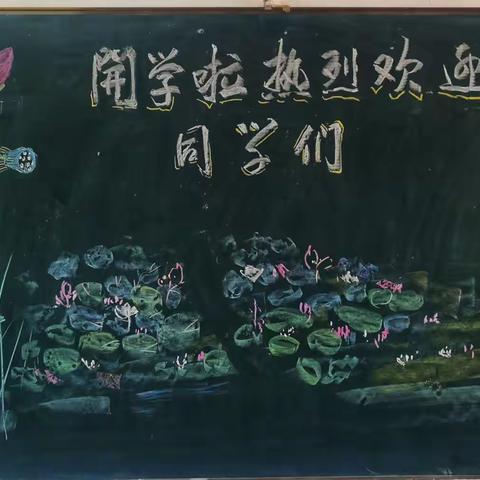 開学啦热烈欢迎
同学们